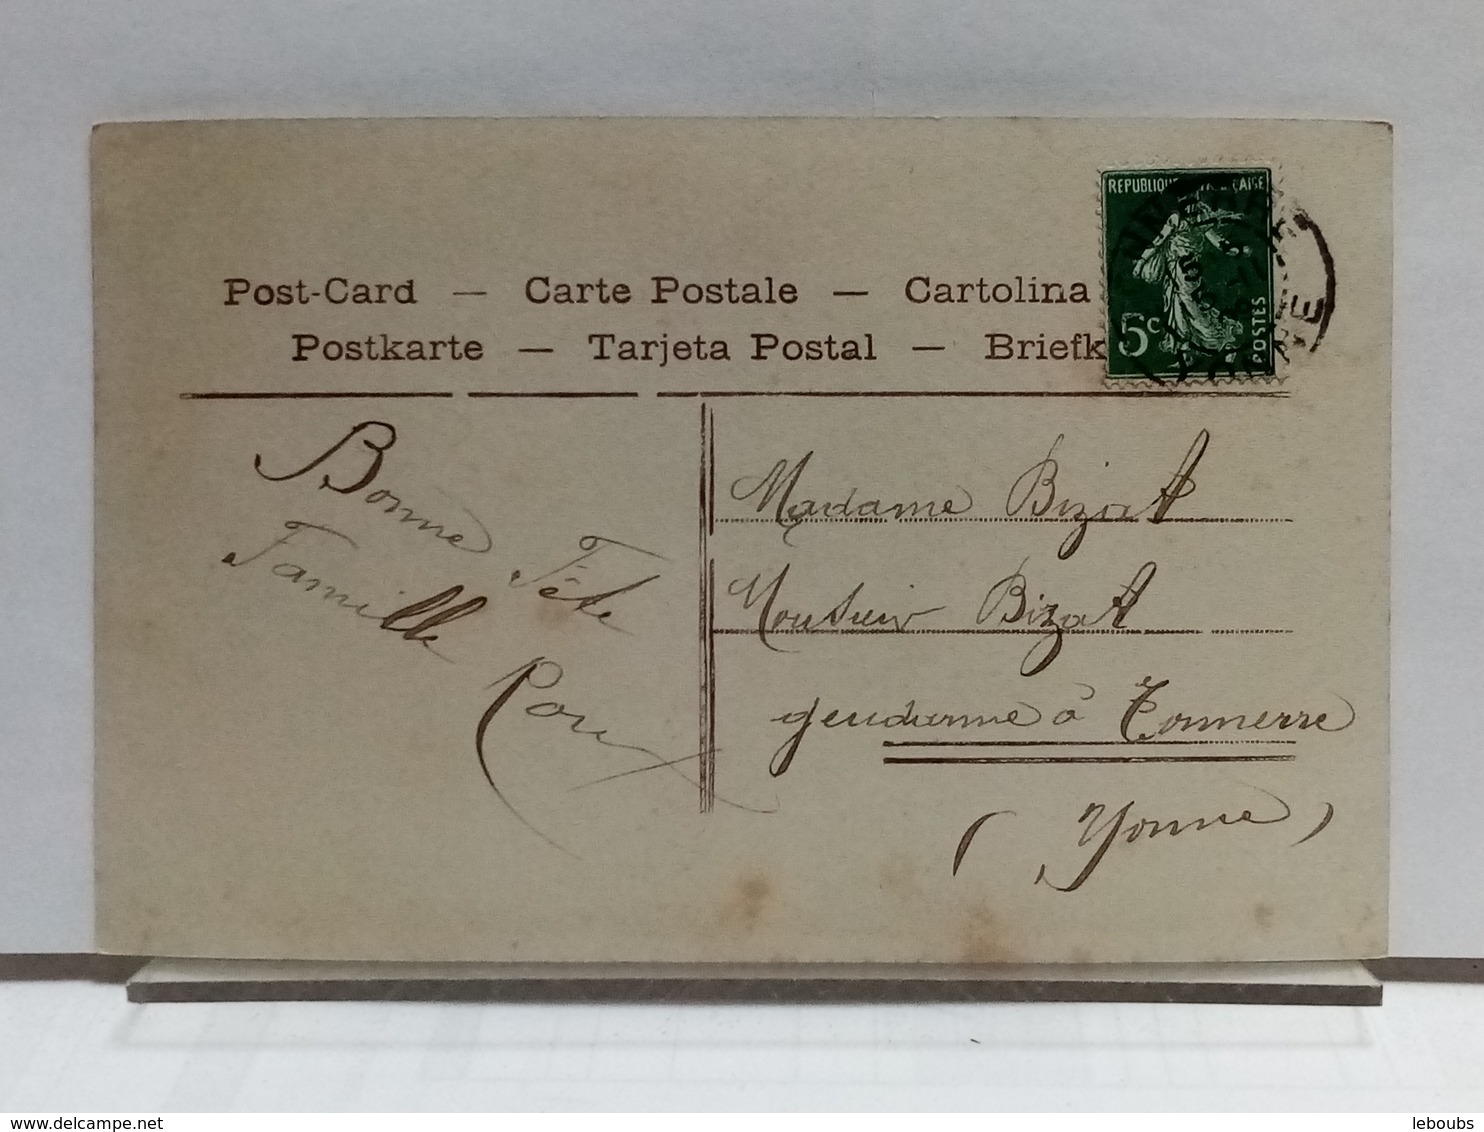 Post-Card — Carte Postale — Cartolina
Postkarte — Tarjeta Postal — Briefk
REPUBLIQUE FRANÇAISE
5c
POSTES
Bonne Fête
Famille
Roux
Madame Bizat
Monsieur Bizat
gendarme à Tonnerre
(Yonne)
delcampe.net
leboubs